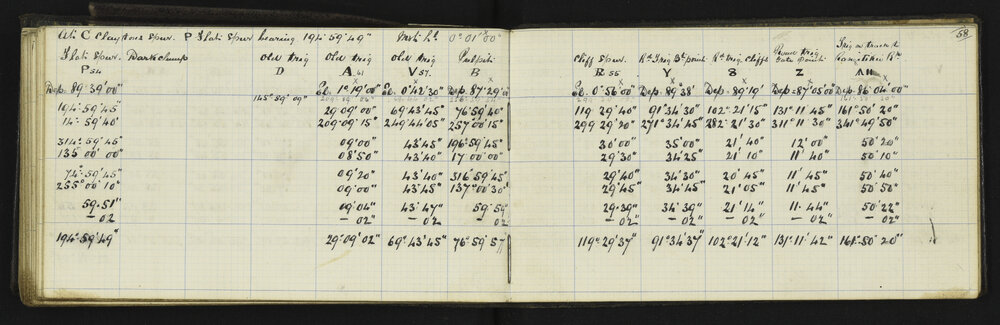 58
At C Claytons Spur. P Flat Spur bearing 194° 59' 49" 0° 01' 00"
Flat Spur. Dark clump Old Trig Old Trig Old Trig Pulpit Cliff Spur. Rd Trig Bt point Rd Trig Cliffs Trig on
P 54 D A 41 V 57. B R 55 Y 8 Z
Dep. 89° 39' 00" El. 1° 19' 00" El. 0° 42' 30" Dep. 87° 29' El. 0° 56' 00" Dep. 89° 38' Dep. 89° 19' Dep = 87° 05' 00" Dep: 86° 04' 00"
145° 59' 09"
194° 59' 45" 29° 09' 00" 69° 43' 45" 76° 59' 40" 119° 29' 40" 91° 34' 30" 102° 21' 15" 131° 11' 45" 161° 50' 20"
14° 59' 40" 209° 09' 15" 249° 44' 05" 257° 00' 15" 299° 29' 20" 271° 34' 45" 282° 21' 30" 311° 11' 30" 341° 49' 50"
314° 59' 45" 09' 00" 43' 45" 196° 59' 45" 30' 00" 35' 00" 21' 40" 12' 00" 50' 20"
135° 00' 00" 08' 50" 43' 40" 17° 00' 00" 29' 30" 34' 25" 21' 10" 11' 40" 50' 10"
74° 59' 45" 09' 20" 43' 40" 316° 59' 45" 29' 40" 34' 40" 20' 45" 11' 45" 50' 40"
255° 00' 10" 09' 00" 43' 45" 137° 00' 30" 29' 45" 34' 45" 21' 05" 11' 45" 50' 50"
59' 51" 09' 04" 43' 47" 59' 59" 29' 39" 34' 39" 21' 14" 11' 44" 50' 22"
— 02 — 02" — 02 — 02 — 02" — 02" — 02" — 02" — 02"
194° 59' 49" 29° 09' 02" 69° 43' 45" 76° 59' 57" 119° 29' 37" 91° 34' 37" 102° 21' 12" 131° 11' 42" 161° 50' 20"